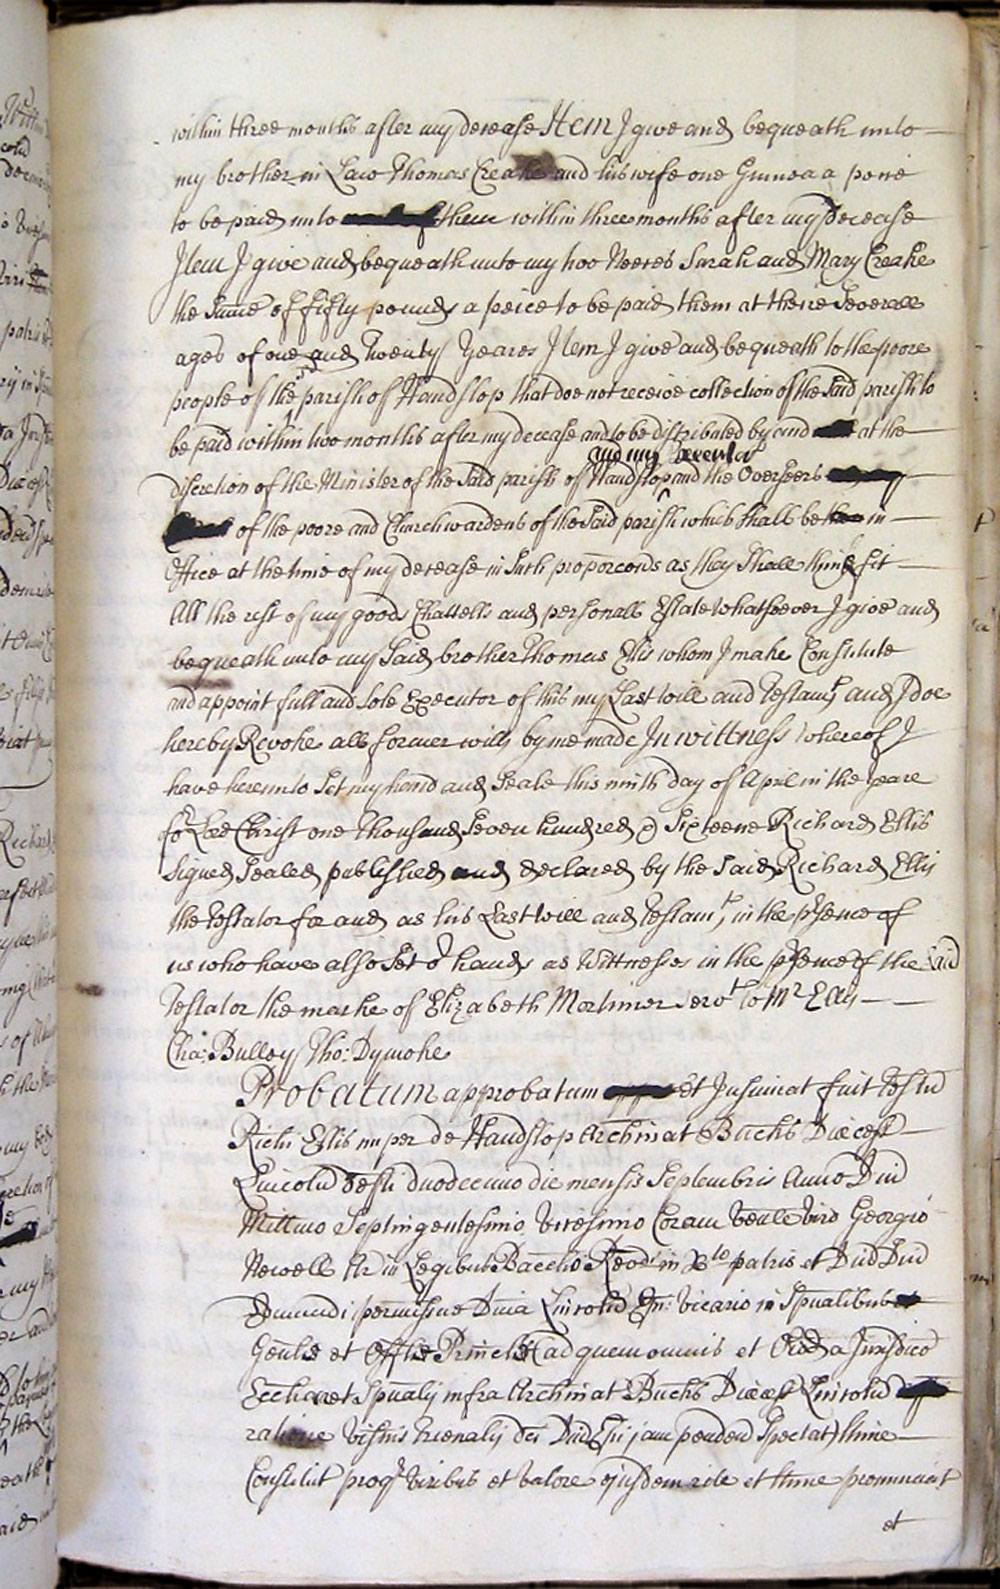 within three months after my decease Item I give and bequeath unto
my brother in Law Thomas Creake and his wife one Guinea a peice
to be paid unto them within three months after my decease
Item I give and bequeath unto my two Neeces Sarah and Mary Creake
the Summe of fifty pounds a peice to be paid them at there Severall
ages of one and Twenty Yeares Item I give and bequeath to the poore
people of the parish of Handslop that doe not receive collection of the Said parish to
be paid within two months after my decease and to be distributed by and at the
and my Executor
discretion of the Minister of the Said parish of Handslop and the Overseers
of the poore and Churchwardens of the Said parish which Shall be then in
Office at the time of my decease in Such proporcons as they Shall think fit
All the rest of my goods Chattells and personall Estate whatsoever I give and
bequeath unto my Said brother Thomas Ellis whom I make Constitute
and appoint full and Sole Executor of this my Last will and Testamt and I doe
hereby Revoke all former wills by me made In wittness whereof I
have hereunto Set my hand and Seale this ninth day of April in the yeare
of or Lord Christ one Thousand Seven hundred & Sixteene Richard Ellis
Signed Sealed published and declared by the Said Richard Ellis
the Testator for and as his Last will and Testamt in the prsence of
us who have also Set or hands as Wittnesses in the prsence of the Said
Testator the marke of Elizabeth Mortimer servt to Mr Ellis
Cha: Bulley Tho: Dymoke
Probatum approbatum et Insinuat fuit
Richi Ellis nuper de Handslop Archinat Bucks
duodecimo die mensis Septembris Anno Dni
Millmo Septingentesimo Vicesimo Coram viro Georgio
Newell in Legibus in patris et Dnd Dnd
Edmundi permissione Dina Vicario in Spualibus
et ad quem omnis et
et infra Archinat Bucks
jam penden Spectat)
viribus et valore ejusdem et
et